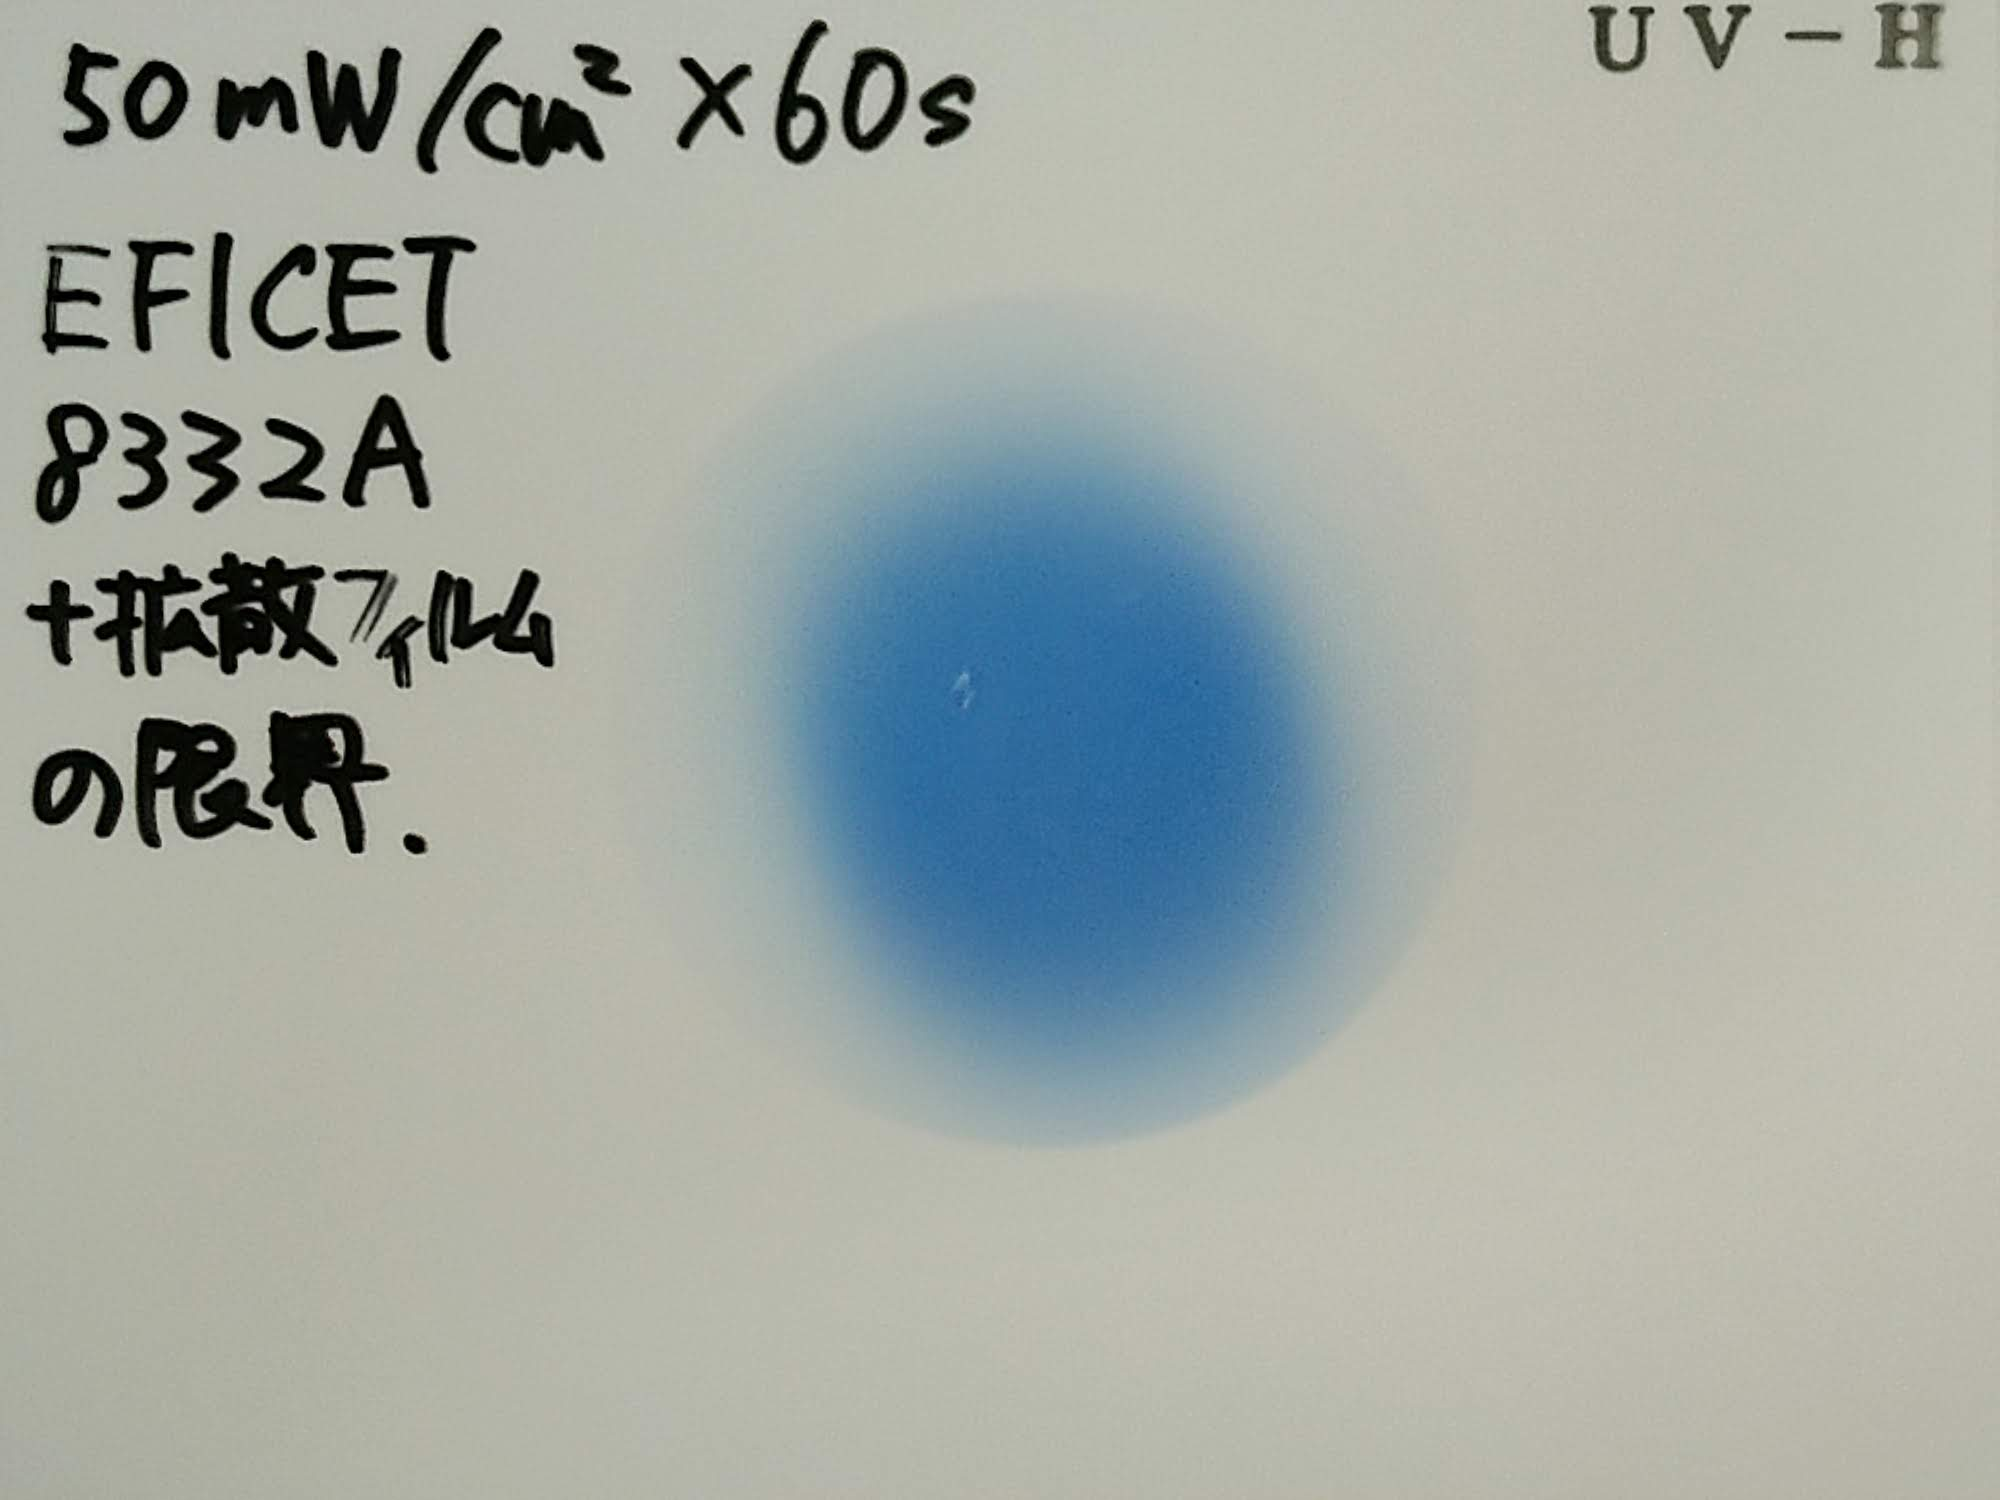 50mW/cm² ×60s
UV-H
EFICET
8332A
+拡散フィルム
の限界.